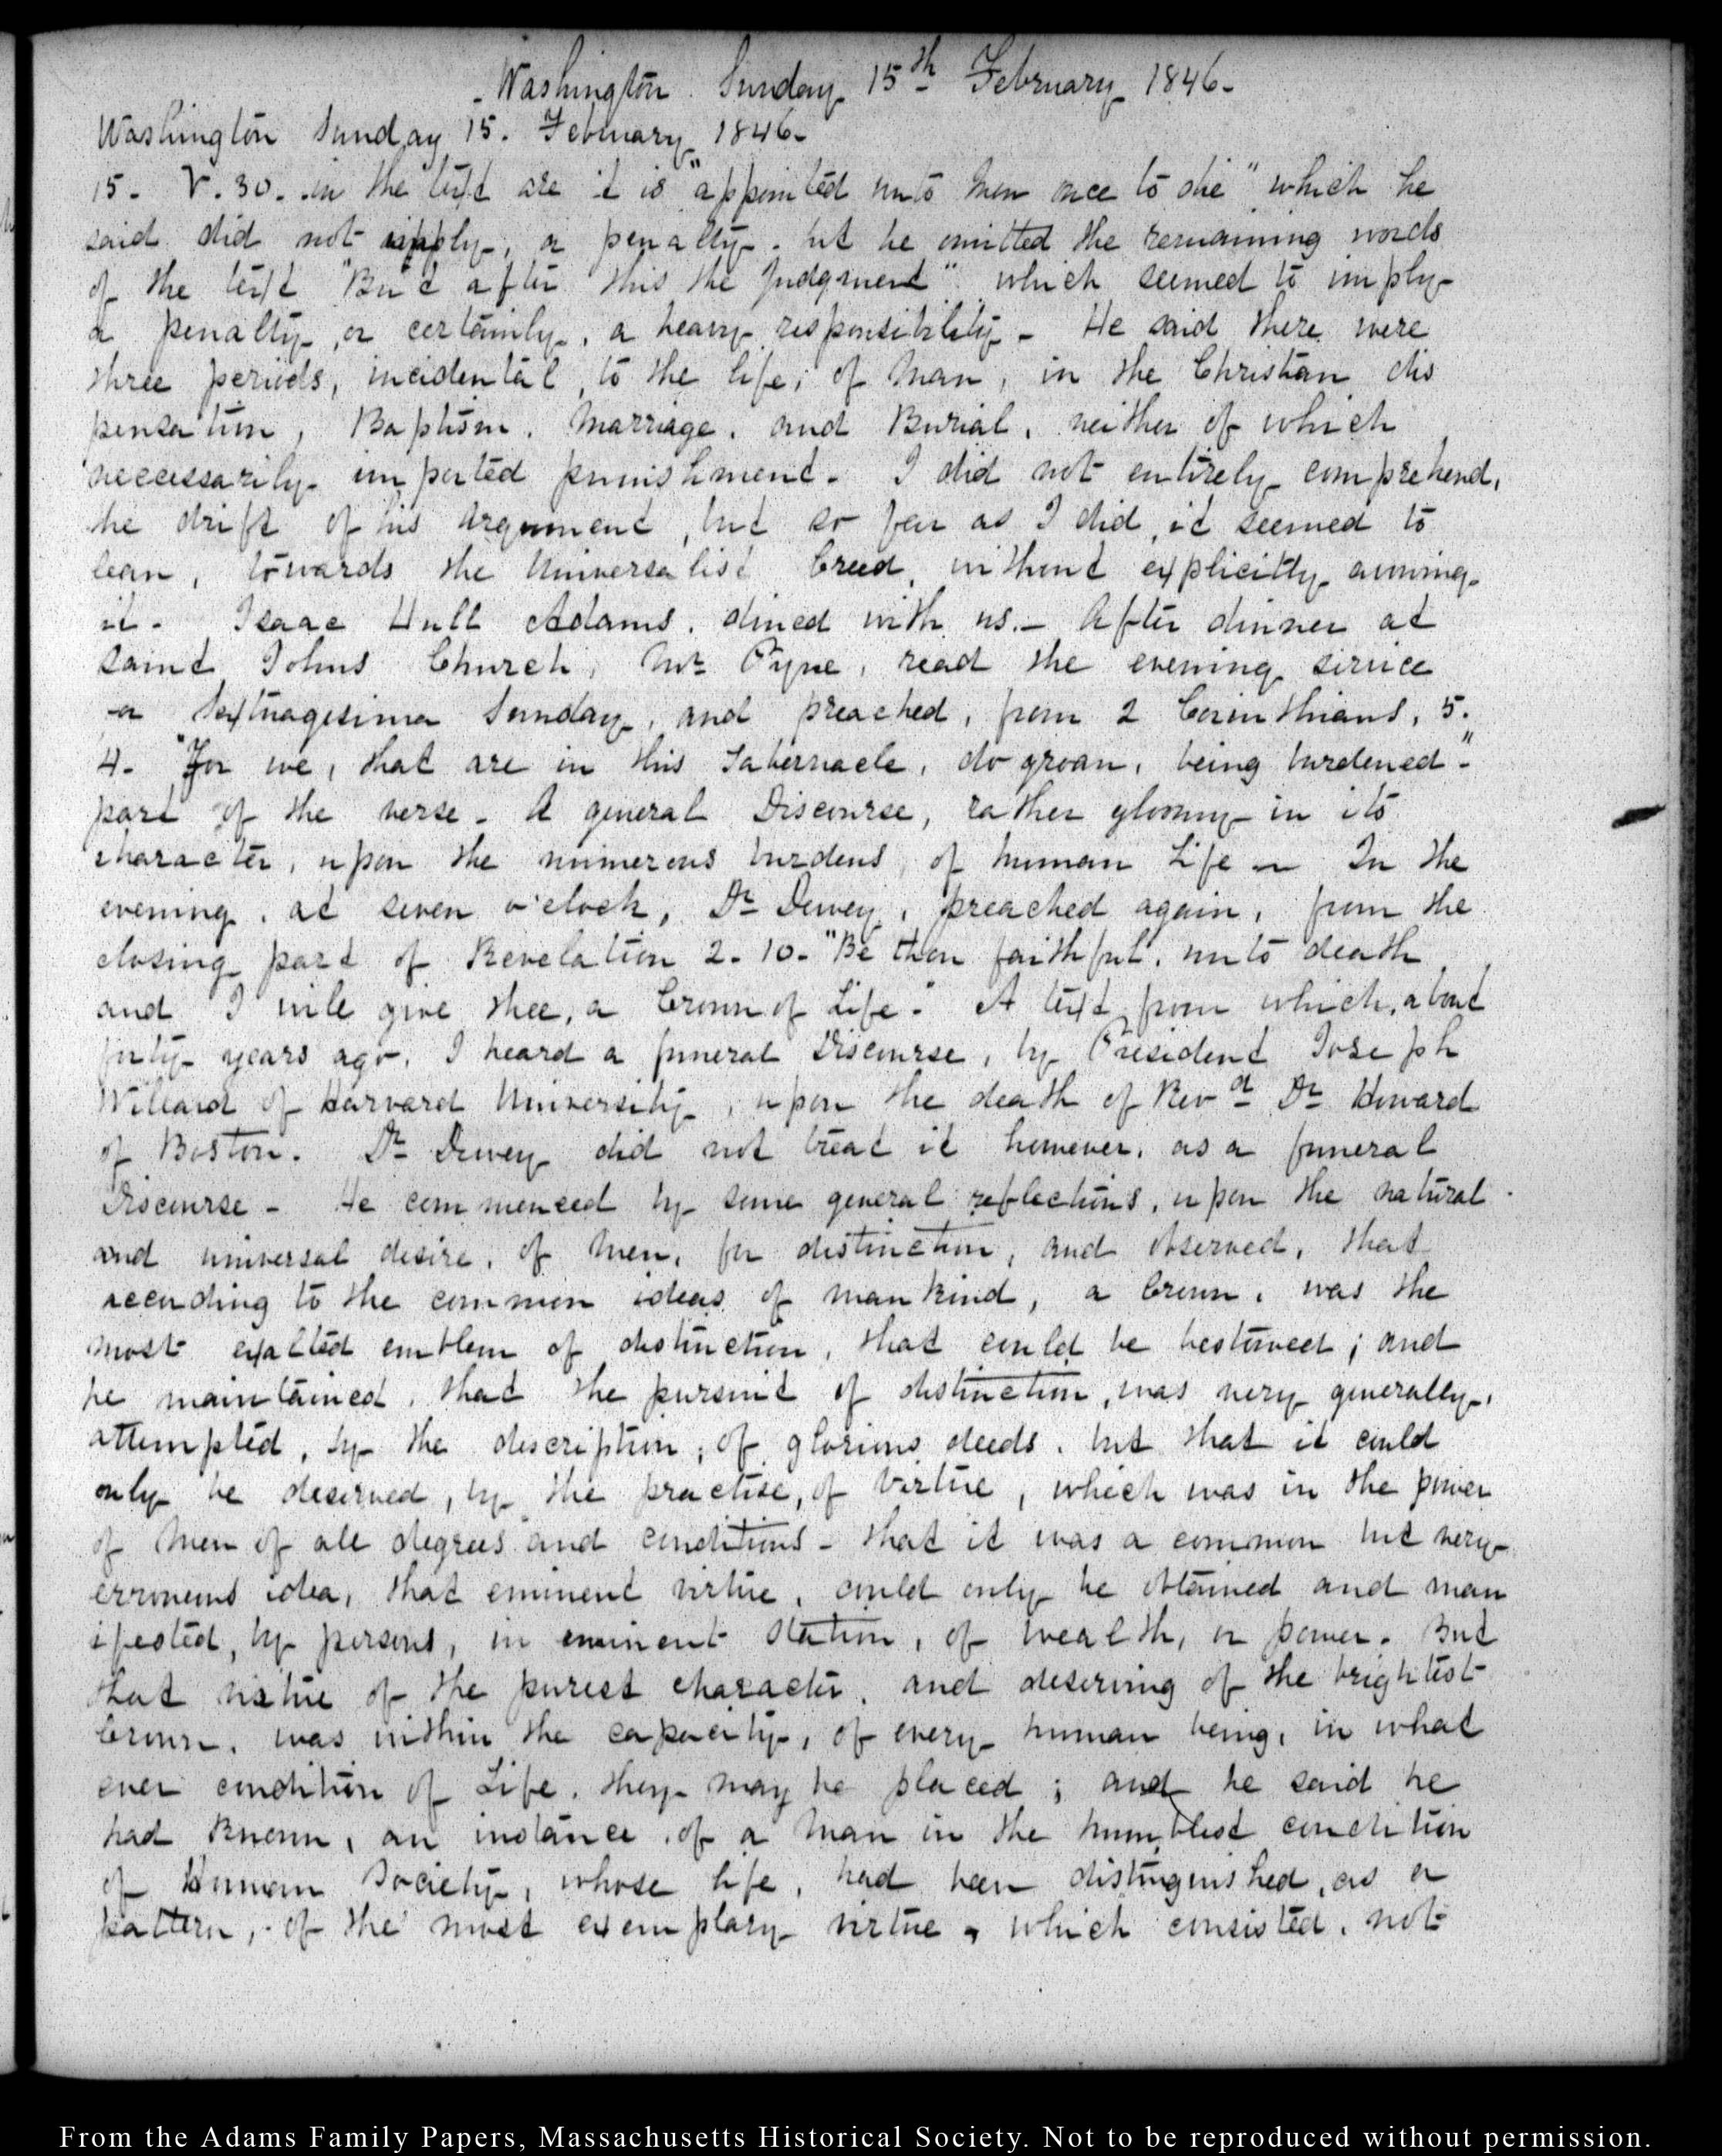 Washington Sunday 15th February 1846-
Washington Sunday 15. February 1846-
15- V. 30. in the text are it is "appointed unto men once to die" which he
said did not imply, a penalty. but he omitted the remaining words
of the text "But after this the Judgment" which seemed to imply
a penalty, or certainly, a heavy responsibility - He said there were
three periods, incidental, to the life, of man, in the Christian dis
pensation, Baptism, Marriage, and Burial, neither of which
necessarily imported punishment. I did not entirely comprehend,
the drift of his argument, but so far as I did, it seemed to
lean, towards the Universalist Creed, without explicitly avowing
it. Isaac Hull Adams, dined with us.- After dinner at
Saint Johns Church, Mr Pyne, read the evening service
a Septuagesima Sunday, and preached, from 2 Corinthians, 5.
4. "For we, that are in this Tabernacle, do groan, being burdened."
part of the verse. A general Discourse, rather gloomy in its
character, upon the numerous burdens, of human Life - In the
evening, at seven o'clock, Dr Dewey, preached again, from the
closing part of Revelation 2. 10. "Be thou faithful, unto death
and I will give thee, a Crown of Life." A text from which, about
forty years ago, I heard a funeral Discourse, by President Joseph
Willard of Harvard University, upon the death of Revd Dr Howard
of Boston. Dr Dewey did not treat it however, as a funeral
Discourse - He commenced by some general reflections, upon the natural
and universal desire, of men, for distinction, and observed, that
according to the common ideas of mankind, a Crown, was the
most exalted emblem of distinction, that could be bestowed; and
he maintained, that the pursuit of distinction, was very generally,
attempted, by the description, of glorious deeds, but that it could
only be deserved, by the practise, of Virtue, which was in the power
of men of all degrees and conditions - that it was a common but very
erroneous idea, that eminent virtue, could only be obtained and man
ifested, by persons, in eminent Station, of wealth, or power. But
that virtue of the purest character, and deserving of the brightest
Crown, was within the capacity, of every human being, in what
ever condition of Life, they may be placed; and he said he
had known, an instance, of a man in the humblest condition
of Human Society, whose life, had been distinguished, as a
pattern, of the most exemplary virtue, which consisted, not
From the Adams Family Papers, Massachusetts Historical Society. Not to be reproduced without permission.